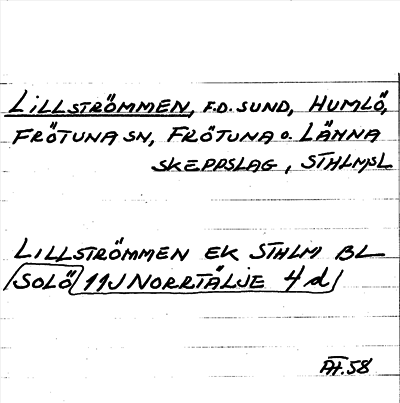 LILLSTRÖMMEN, F.D. SUND, HUMLÖ,
FRÖTUNA SN, FRÖTUNA o. LÄNNA
SKEPPSLAG, STHLMSL
LILLSTRÖMMEN EK STHLM BL
SOLÖ 11J NORRTÄLJE 4 d
ÄH.58